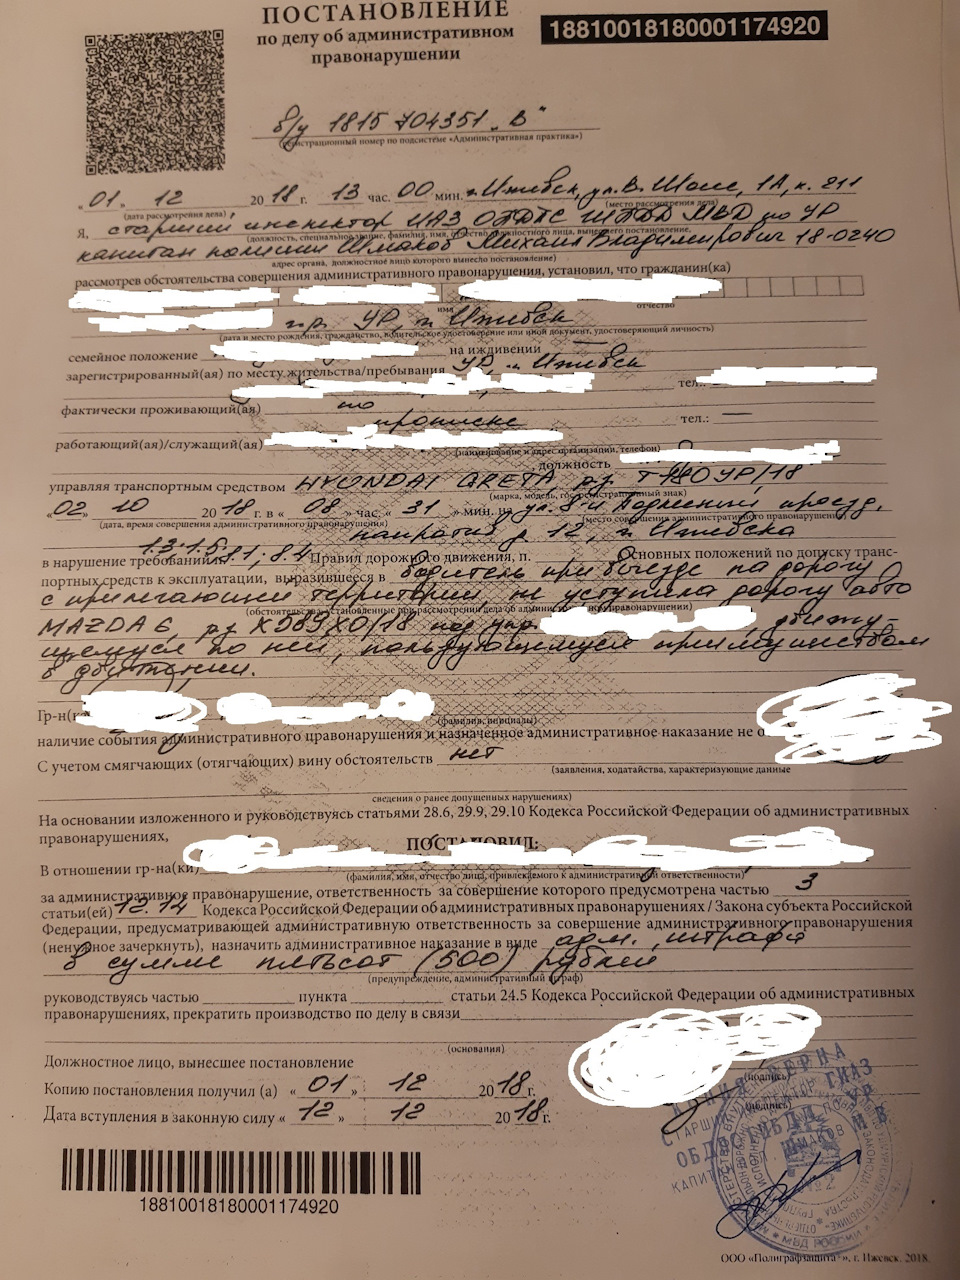 ПОСТАНОВЛЕНИЕ
по делу об административном
правонарушении
18810018180001174920
б/у 1815 704351 „В"
(регистрационный номер по подсистеме «Административная практика»)
„ 01 " 12 2018 г. 13 час. 00 мин. г. Ижевск, ул. В. Шоссе, 1А, к. 211
(дата рассмотрения дела) (место рассмотрения дела)
Я, старший инспектор ИАЗ ОГДПС МВД по УР
(должность, специальное звание, фамилия, имя, отчество должностного лица, вынесшего постановление,
капитан полиции Михаил Владимирович 18-0240
адрес органа, должностное лицо которого вынесло постановление)
рассмотрев обстоятельства совершения административного правонарушения, установил, что гражданин(ка)
имя отчество
г.р. УР, г. Ижевск
(дата и место рождения, гражданство, водительское удостоверение или иной документ, удостоверяющий личность)
семейное положение на иждивении —
зарегистрированный(ая) по месту жительства/пребывания УР, г. Ижевск
тел.:
фактически проживающий(ая) по
прописке тел.: —
работающий(ая)/служащий(ая)
(наименование и адрес организации, телефон)
, должность
управляя транспортным средством HYUNDAI GRETA рз УР/18
(марка, модель, гос. регистрационный знак)
«02» 10 2018 г. в « 08 » час. « 31 » мин. на ул. 8-й Подлесный проезд,
(дата, время совершения административного правонарушения) (место совершения административного правонарушения)
напротив д. 12, г. Ижевска
в нарушение требований 1.3; 1.5; 8.1; 8.4 Правил дорожного движения, п. Основных положений по допуску транс-
портных средств к эксплуатации, выразившееся в водитель при выезде на дорогу
с прилегающей территории не уступила дорогу авто
(обстоятельства, установленные при рассмотрении дела об административном правонарушении)
MAZDA 6, рз Х589ХО/18 под упр. движу-
щемуся по ней, пользующемуся преимуществом
в движении.
Гр-н(к
(фамилия, инициалы)
наличие события административного правонарушения и назначенное административное наказание не о
С учетом смягчающих (отягчающих) вину обстоятельств нет
(заявления, ходатайства, характеризующие данные
сведения о ранее допущенных нарушениях)
На основании изложенного и руководствуясь статьями 28.6, 29.9, 29.10 Кодекса Российской Федерации об административных
правонарушениях,
ПОСТАНОВИЛ:
В отношении гр-на(ки)
(фамилия, имя, отчество лица, привлекаемого к административной ответственности)
за административное правонарушение, ответственность за совершение которого предусмотрена частью 3
статьи(ей) 12.14 Кодекса Российской Федерации об административных правонарушениях / Закона субъекта Российской
Федерации, предусматривающей административную ответственность за совершение административного правонарушения
(ненужное зачеркнуть), назначить административное наказание в виде адм. штрафа
в сумме пятьсот (500) рублей
(предупреждение, административный штраф)
руководствуясь частью пункта статьи 24.5 Кодекса Российской Федерации об административных
правонарушениях, прекратить производство по делу в связи
(основания)
Должностное лицо, вынесшее постановление
(подпись)
Копию постановления получил (а) « 01 » 12 2018 г.
(подпись)
Дата вступления в законную силу « 12 » 12 2018 г.
КОПИЯ ВЕРНА
18810018180001174920
ООО «Полиграфзащита», г. Ижевск. 2018.